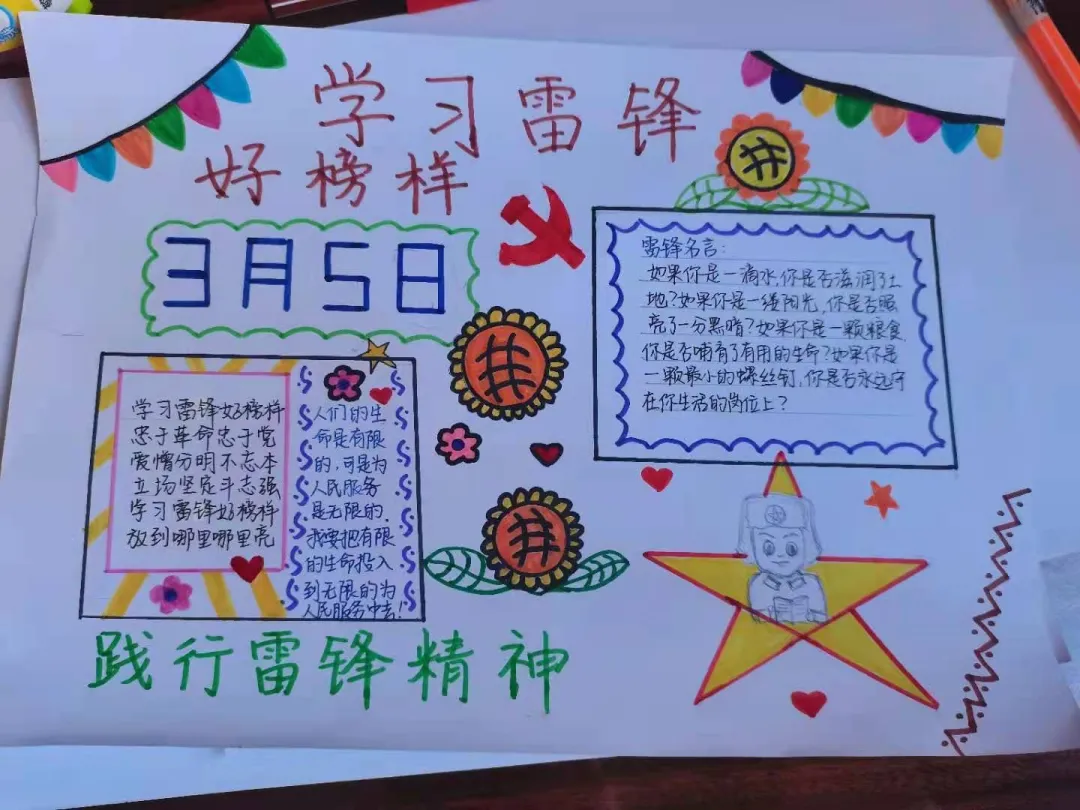 学习雷锋
好榜样
3月5日
雷锋名言:
如果你是一滴水,你是否滋润了土
地?如果你是一缕阳光,你是否照
亮了一分黑暗?如果你是一颗粮食,
你是否哺育了有用的生命?如果你是
一颗最小的螺丝钉,你是否永远守
在你生活的岗位上?
学习雷锋好榜样
忠于革命忠于党
爱憎分明不忘本
立场坚定斗志强
学习雷锋好榜样
放到哪里哪里亮
人们的生
命是有限
的,可是为
人民服务
是无限的,
我要把有限
的生命投入
到无限的为
人民服务中去!
践行雷锋精神